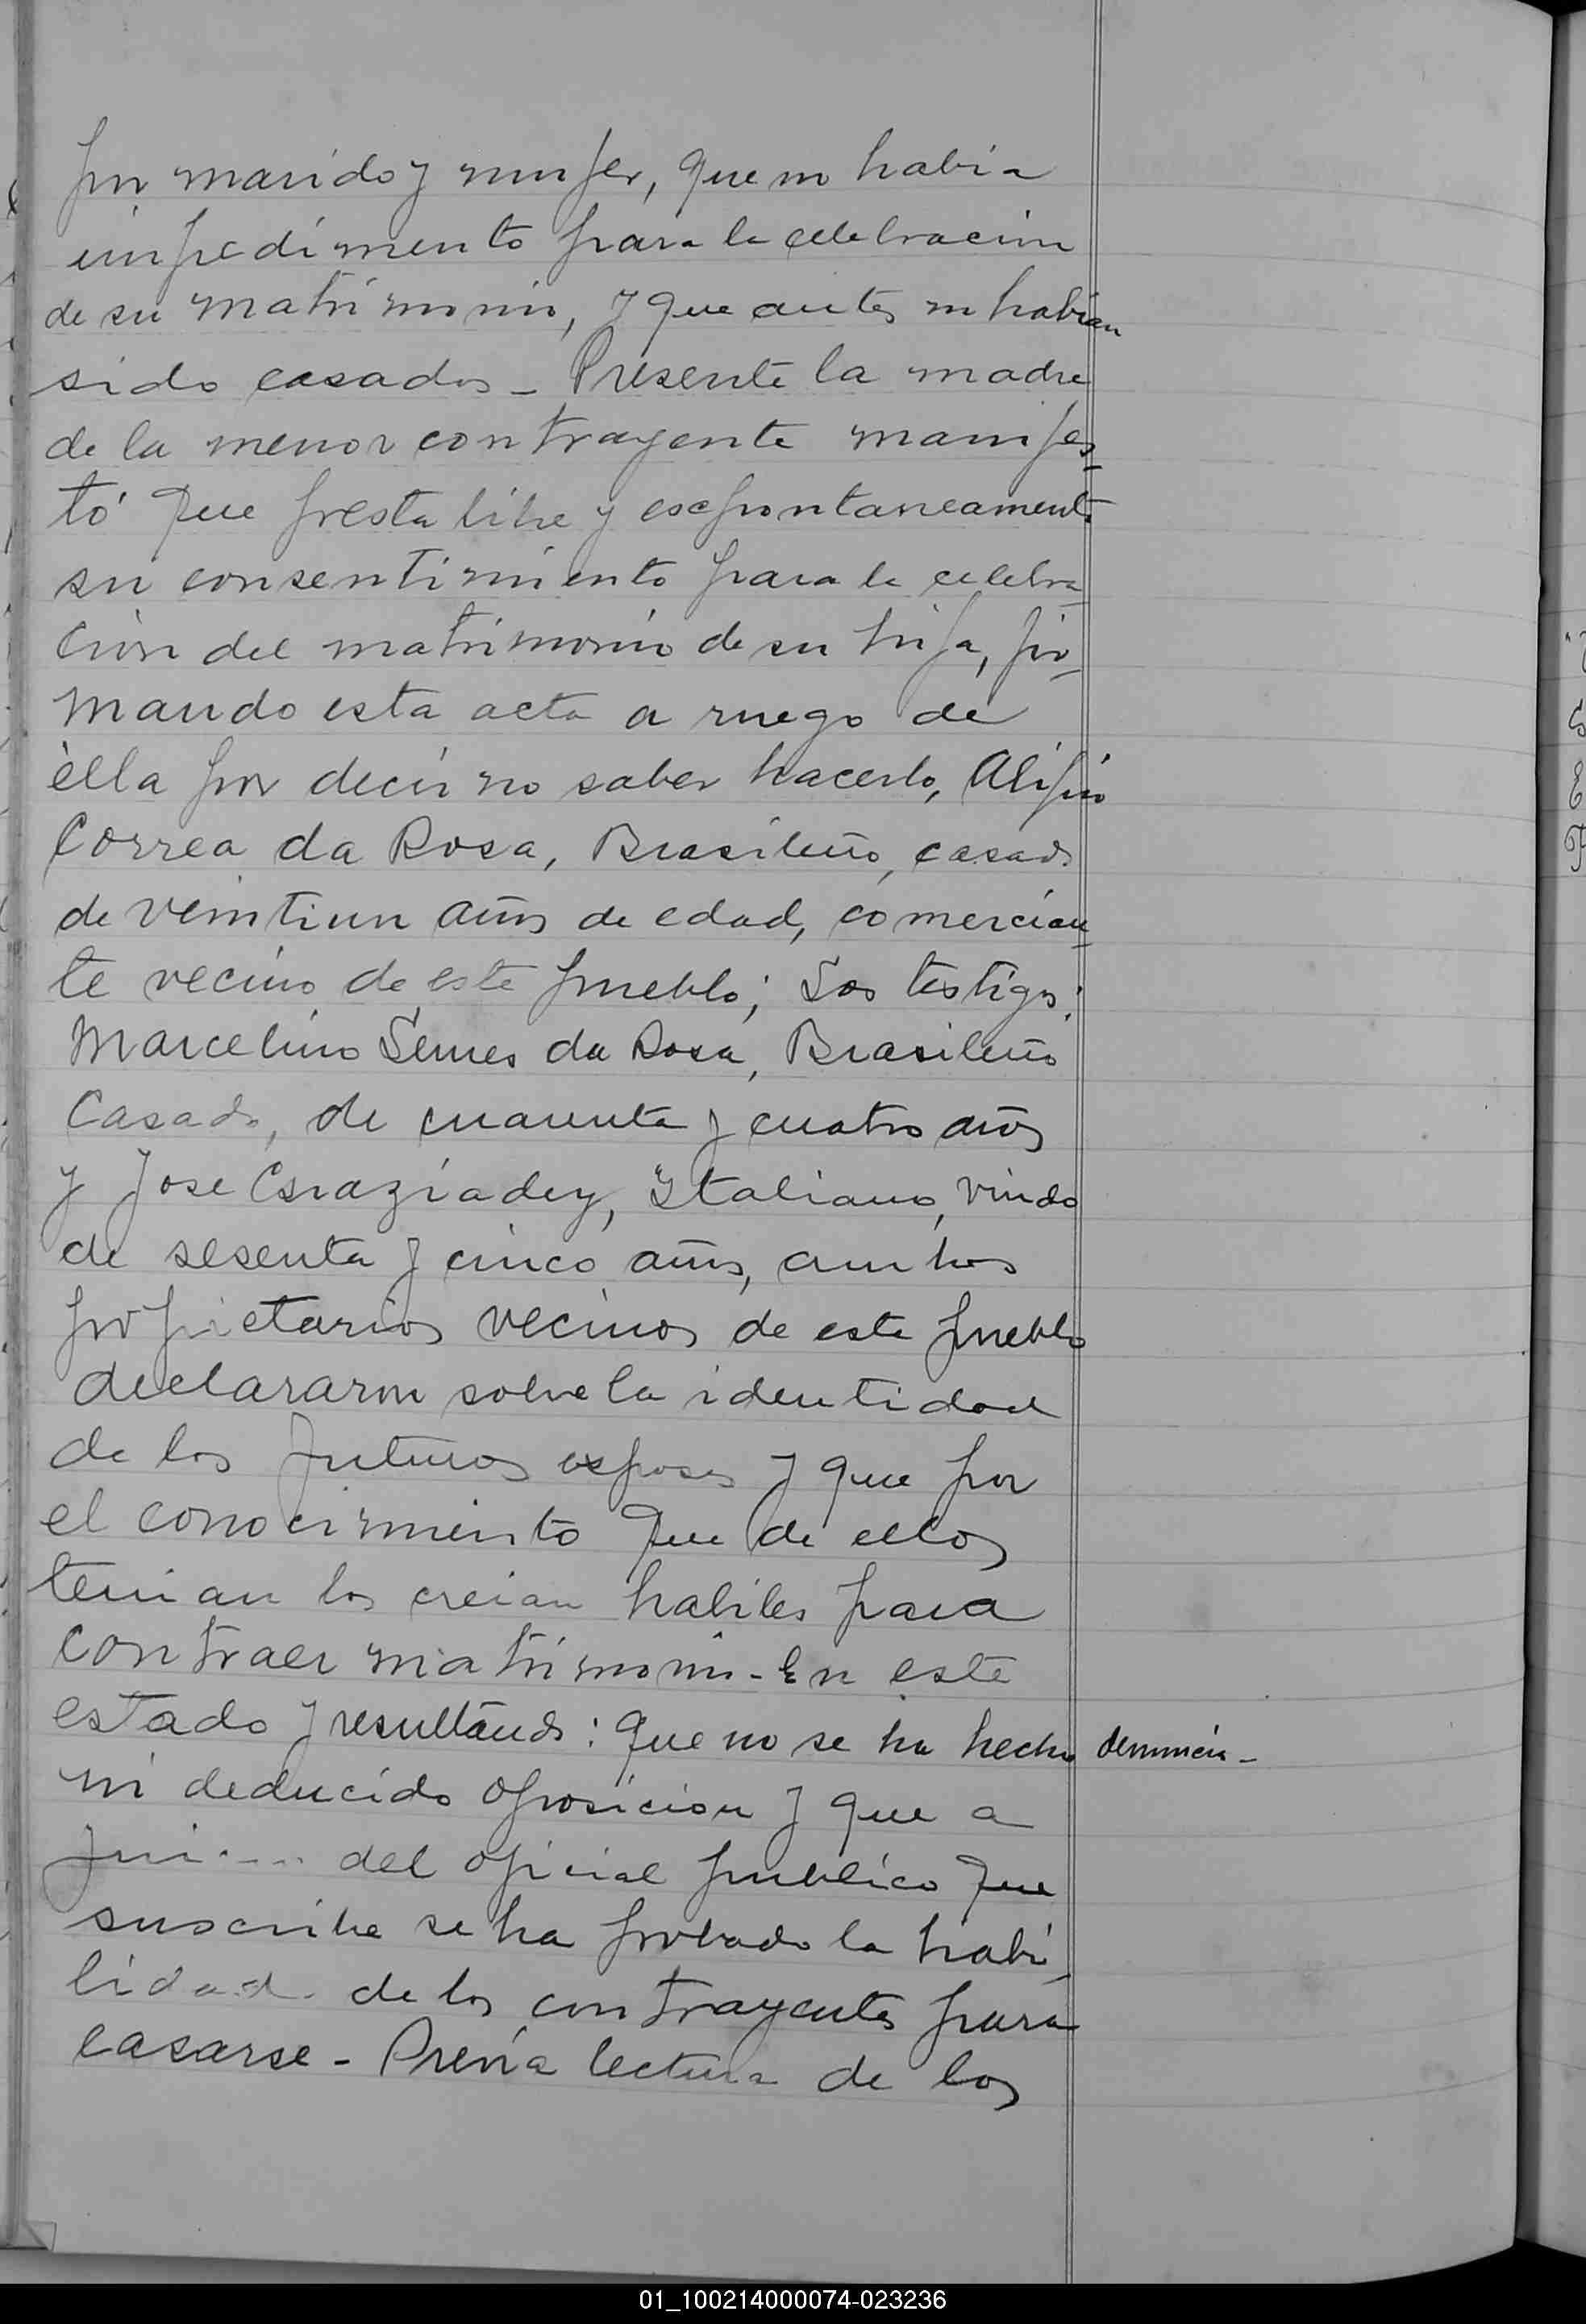 por marido y mujer, que no habia
impedimento para la celebracion
de su matrimonio, y que antes no habian
sido casados - Presente la madre
de la menor contrayente manifes-
tó que presta libre y esepontaneamente
su consentimiento para la celebra
cion del matrimonio de su hija, fir-
mando esta acta a ruego de
ella por decir no saber hacerlo, Alipio
Correa da Rosa, Brasileño, casado
de veintiun años de edad, comercian-
te vecino de este pueblo; Los testigos:
Marcelino da Rosa, Brasileño
Casado, de cuarenta y cuatro años
y Jose Italiano, viudo
de sesenta y cinco años, ambos
propietarios vecinos de este pueblo
declararon sobre la identidad
de los futuros esposos y que por
el conocimiento que de ellos
tenian los creian habiles para
contraer matrimonio - En este
estado y resultando: Que no se ha hecho denuncia -
ni deducido oposicion y que a
del oficial publico que
suscribe se ha probado la habi-
lidad de los contrayentes para
casarse - Previa lectura de los
01_100214000074-023236